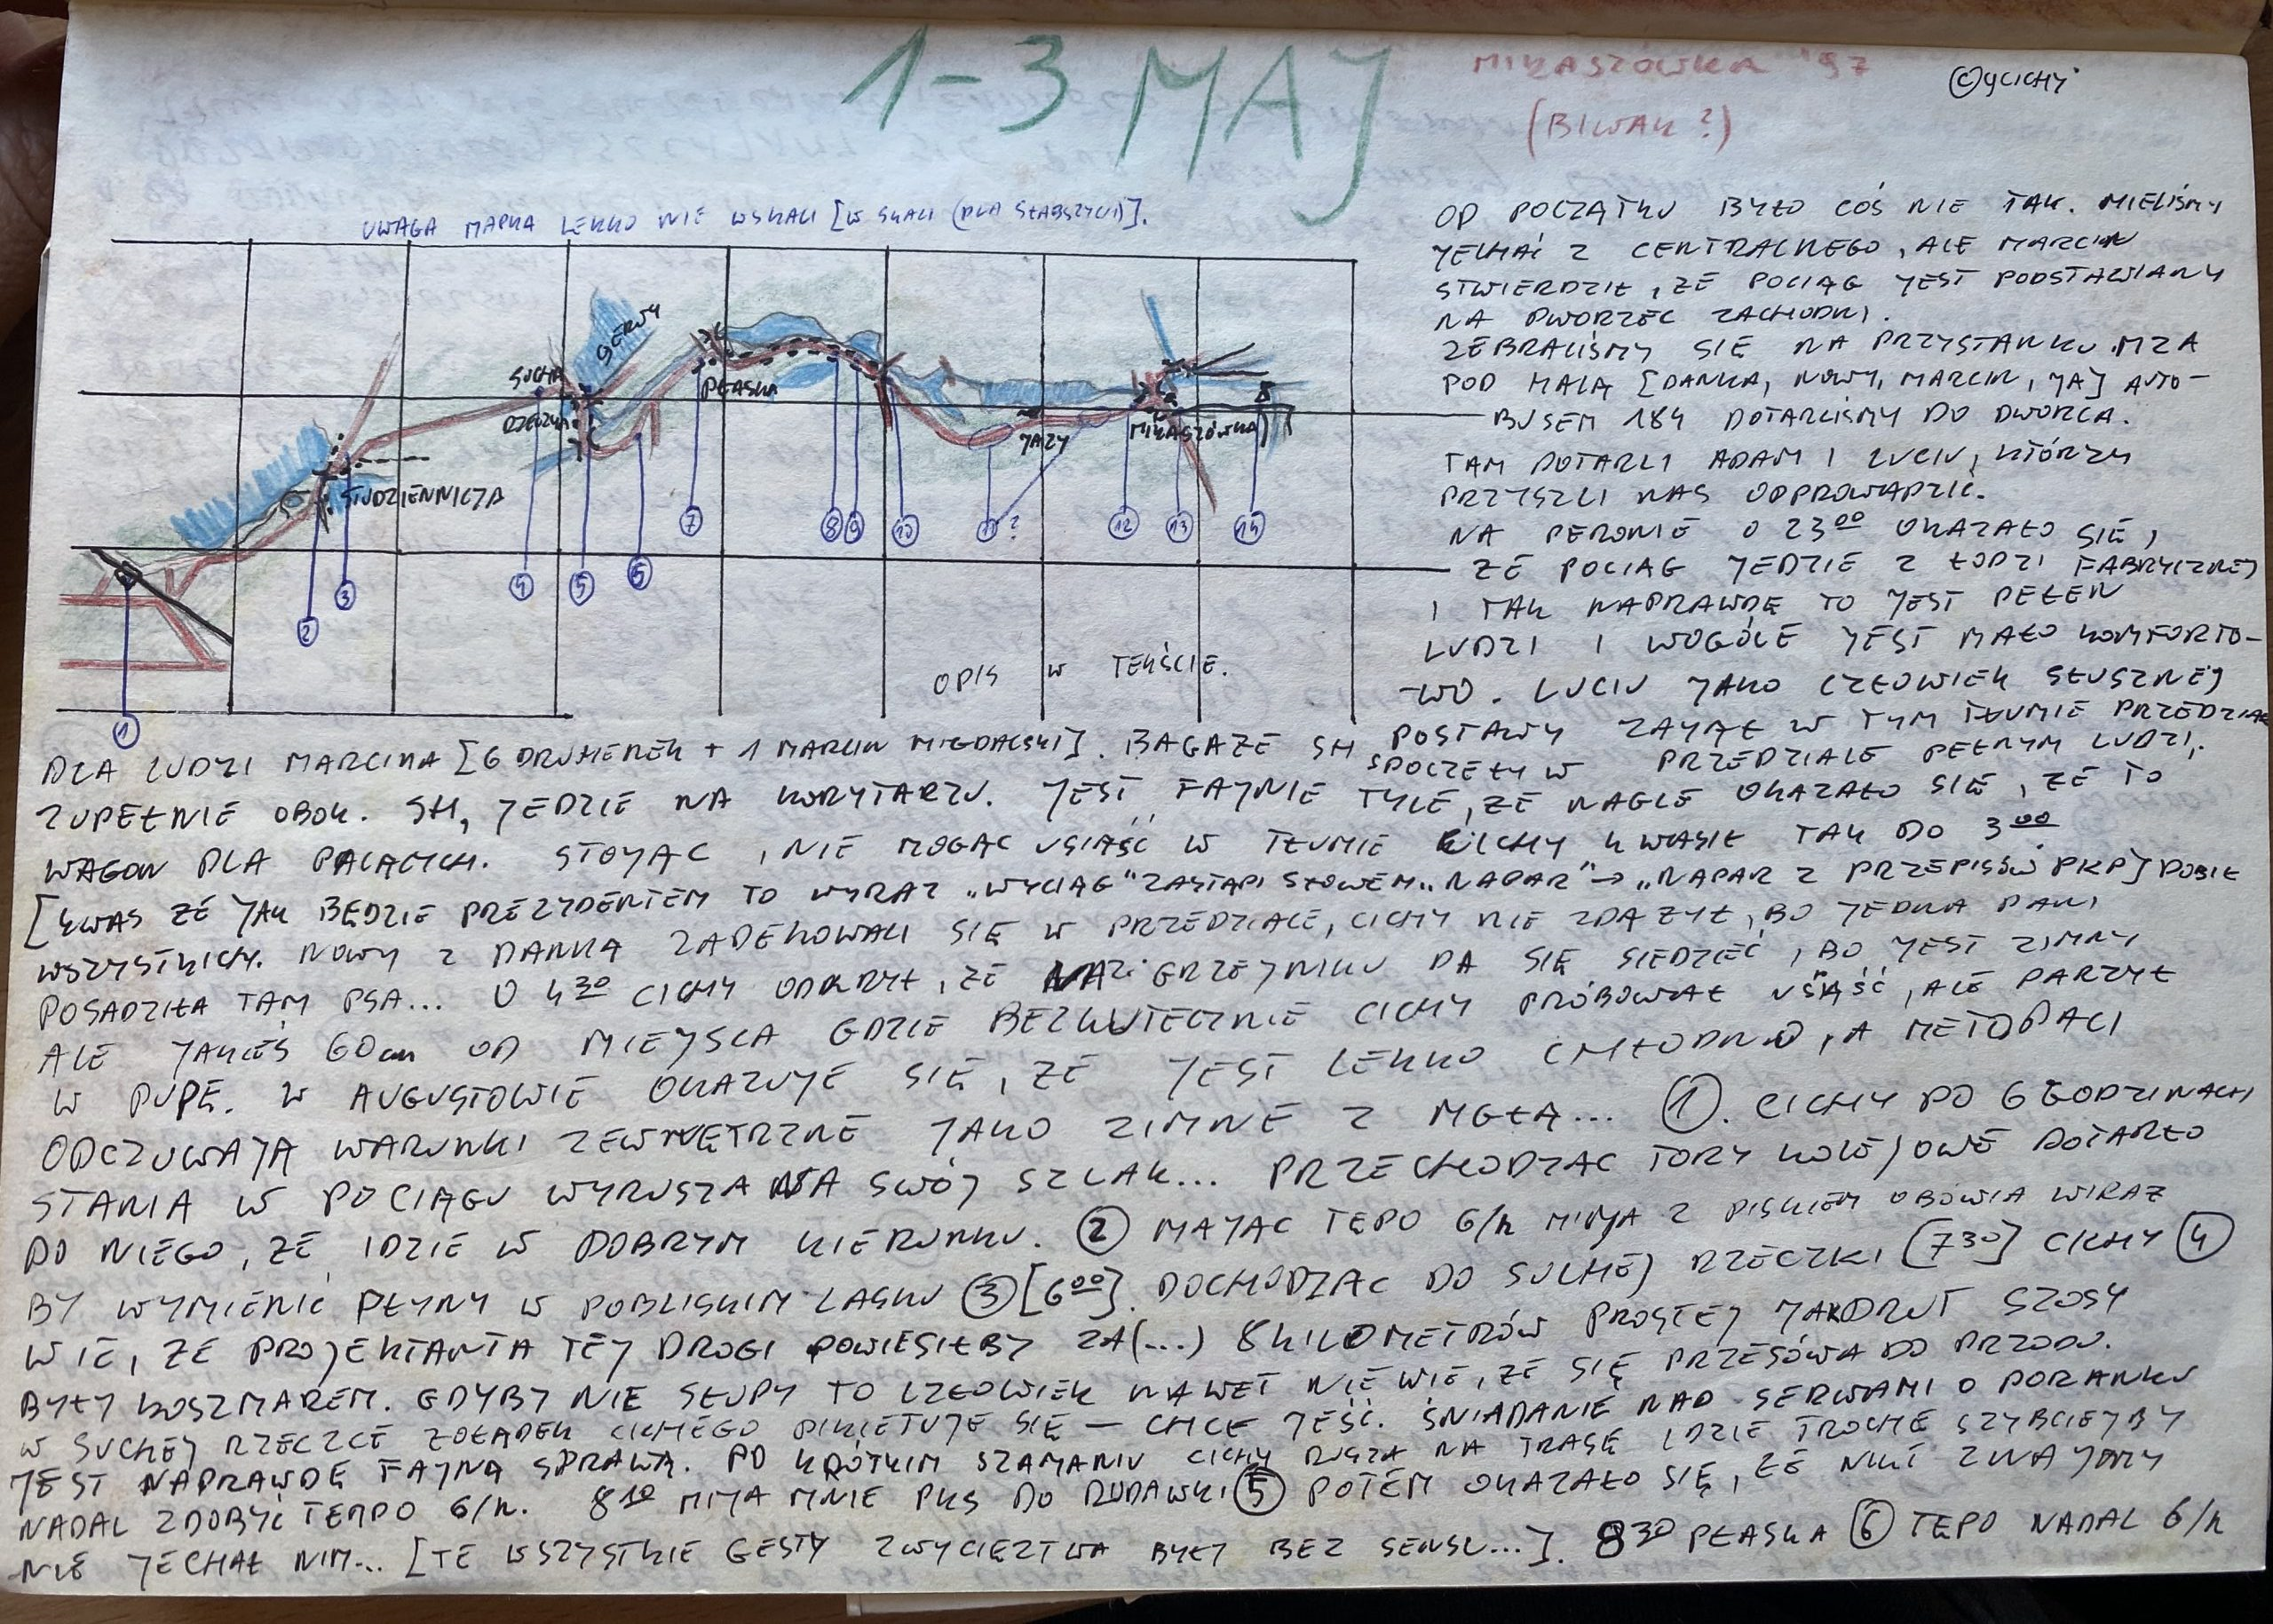 1-3 MAJ
MIKASZÓWKA '97
(BIWAK?)
©YCICHY
UWAGA MAPKA LEKKO NIE WSKALI [W SKALI (DLA SŁABSZYCH)].
SERWY
SUCHA
RZECZKA
PŁASKA
STUDZIENNICZA
JAZY
MIKASZÓWKA
1
2
3
4
5
6
7
8
9
10
11?
12
13
14
OPIS W TEKŚCIE.
OD POCZĄTKU BYŁO COŚ NIE TAK. MIELIŚMY
JECHAĆ Z CENTRALNEGO, ALE MARCIN
STWIERDZIŁ, ŻE POCIĄG JEST PODSTAWIANY
NA DWORZEC ZACHODNI.
ZEBRALIŚMY SIĘ NA PRZYSTANKU MZA
POD HALĄ [DANKA, NOWY, MARCIN, JA] AUTO-
BUSEM 184 DOTARLIŚMY DO DWORCA.
TAM DOTARLI ADAM I LUCIU, KTÓRZY
PRZYSZLI NAS ODPROWADZIĆ.
NA PERONIE O 23⁰⁰ OKAZAŁO SIĘ,
ŻE POCIĄG JEDZIE Z ŁODZI FABRYCZNEJ
I TAK NAPRAWDĘ TO JEST PEŁEN
LUDZI I WOGÓLE JEST MAŁO KOMFORTO-
-WO. LUCIU JAKO CZŁOWIEK SŁUSZNEJ
POSTAWY ZAJĄŁ W TYM TŁUMIE PRZEDZIAŁ
DLA LUDZI MARCINA [6 DRUHENEK + 1 MARCIN MIGDALSKI]. BAGAŻE SH SPOCZĘŁY W PRZEDZIALE PEŁNYM LUDZI,
ZUPEŁNIE OBOK. SH, JEDZIE NA KORYTARZU. JEST FAJNIE TYLE, ŻE NAGLE OKAZAŁO SIĘ, ŻE TO
WAGON DLA PALĄCYCH. STOJĄC, NIE MOGĄC USIĄŚĆ W TŁUMIE CICHY KWASIŁ TAK DO 3⁰⁰
[KWAS ŻE JAK BĘDZIE PREZYDENTEM TO WYRAZ „WYCIĄG" ZASTĄPI SŁOWEM „NAPAR" → „NAPAR Z PRZEPISÓW PKP] DOBIŁ
WSZYSTKICH. NOWY Z DANKĄ ZADEKOWALI SIĘ W PRZEDZIALE, CICHY NIE ZDĄŻYŁ, BO JEDNA PANI
POSADZIŁA TAM PSA... O 4³⁰ CICHY ODKRYŁ, ŻE NA GRZEJNIKU DA SIĘ SIEDZIEĆ, BO JEST ZIMNY
ALE JAKIEŚ 60cm OD MIEJSCA GDZIE BEZKUTECZNIE CICHY PRÓBOWAŁ USIĄŚĆ, ALE PARZYŁ
W PUPĘ. W AUGUSTOWIE OKAZUJE SIĘ, ŻE JEST LEKKO CHŁODNO, A METOPACI
ODCZUWAJĄ WARUNKI ZEWNĘTRZNE JAKO ZIMNE Z MGŁĄ... 1. CICHY PO 6 GODZINACH
STANIA W POCIĄGU WYRUSZA NA SWÓJ SZLAK... PRZECHODZĄC TORY KOLEJOWE DOTARŁO
DO NIEGO, ŻE IDZIE W DOBRYM KIERUNKU. 2 MAJĄC TEPO 6/h MIJA Z PISKIEM OBÓWIA WIRAŻ
BY WYMIENIĆ PŁYNY W POBLISKIM LASKU 3 [6⁰⁰]. DOCHODZĄC DO SUCHEJ RZECZKI [7³⁰] CICHY 4
WIE, ŻE PROJEKTANTA TEJ DROGI POWIESIŁBY ZA (...) 8 KILOMETRÓW PROSTEJ JAKDRUT SZOSY
BYŁY KOSZMAREM. GDYBY NIE SŁUPY TO CZŁOWIEK NAWET NIE WIE, ŻE SIĘ PRZESÓWA DO PRZODU.
W SUCHEJ RZECZCE ŻOŁĄDEK CICHEGO PIKIETUJE SIĘ — CHCE JEŚĆ. ŚNIADANIE NAD SERWAMI O PORANKU
JEST NAPRAWDĘ FAJNĄ SPRAWĄ. PO KRÓTKIM SZAMANIU CICHY RUSZA NA TRASĘ IDZIE TROCHĘ SZYBCIEJ BY
NADAL ZDOBYĆ TEMPO 6/h. 8¹⁰ MIJA MNIE PKS DO RUDAWKI 5 POTEM OKAZAŁO SIĘ, ŻE NIKT ZNAJOMY
NIE JECHAŁ NIM... [TE WSZYSTKIE GESTY ZWYCIĘZTWA BYŁY BEZ SENSU...]. 8³⁰ PŁASKA 6 TĘPO NADAL 6/h